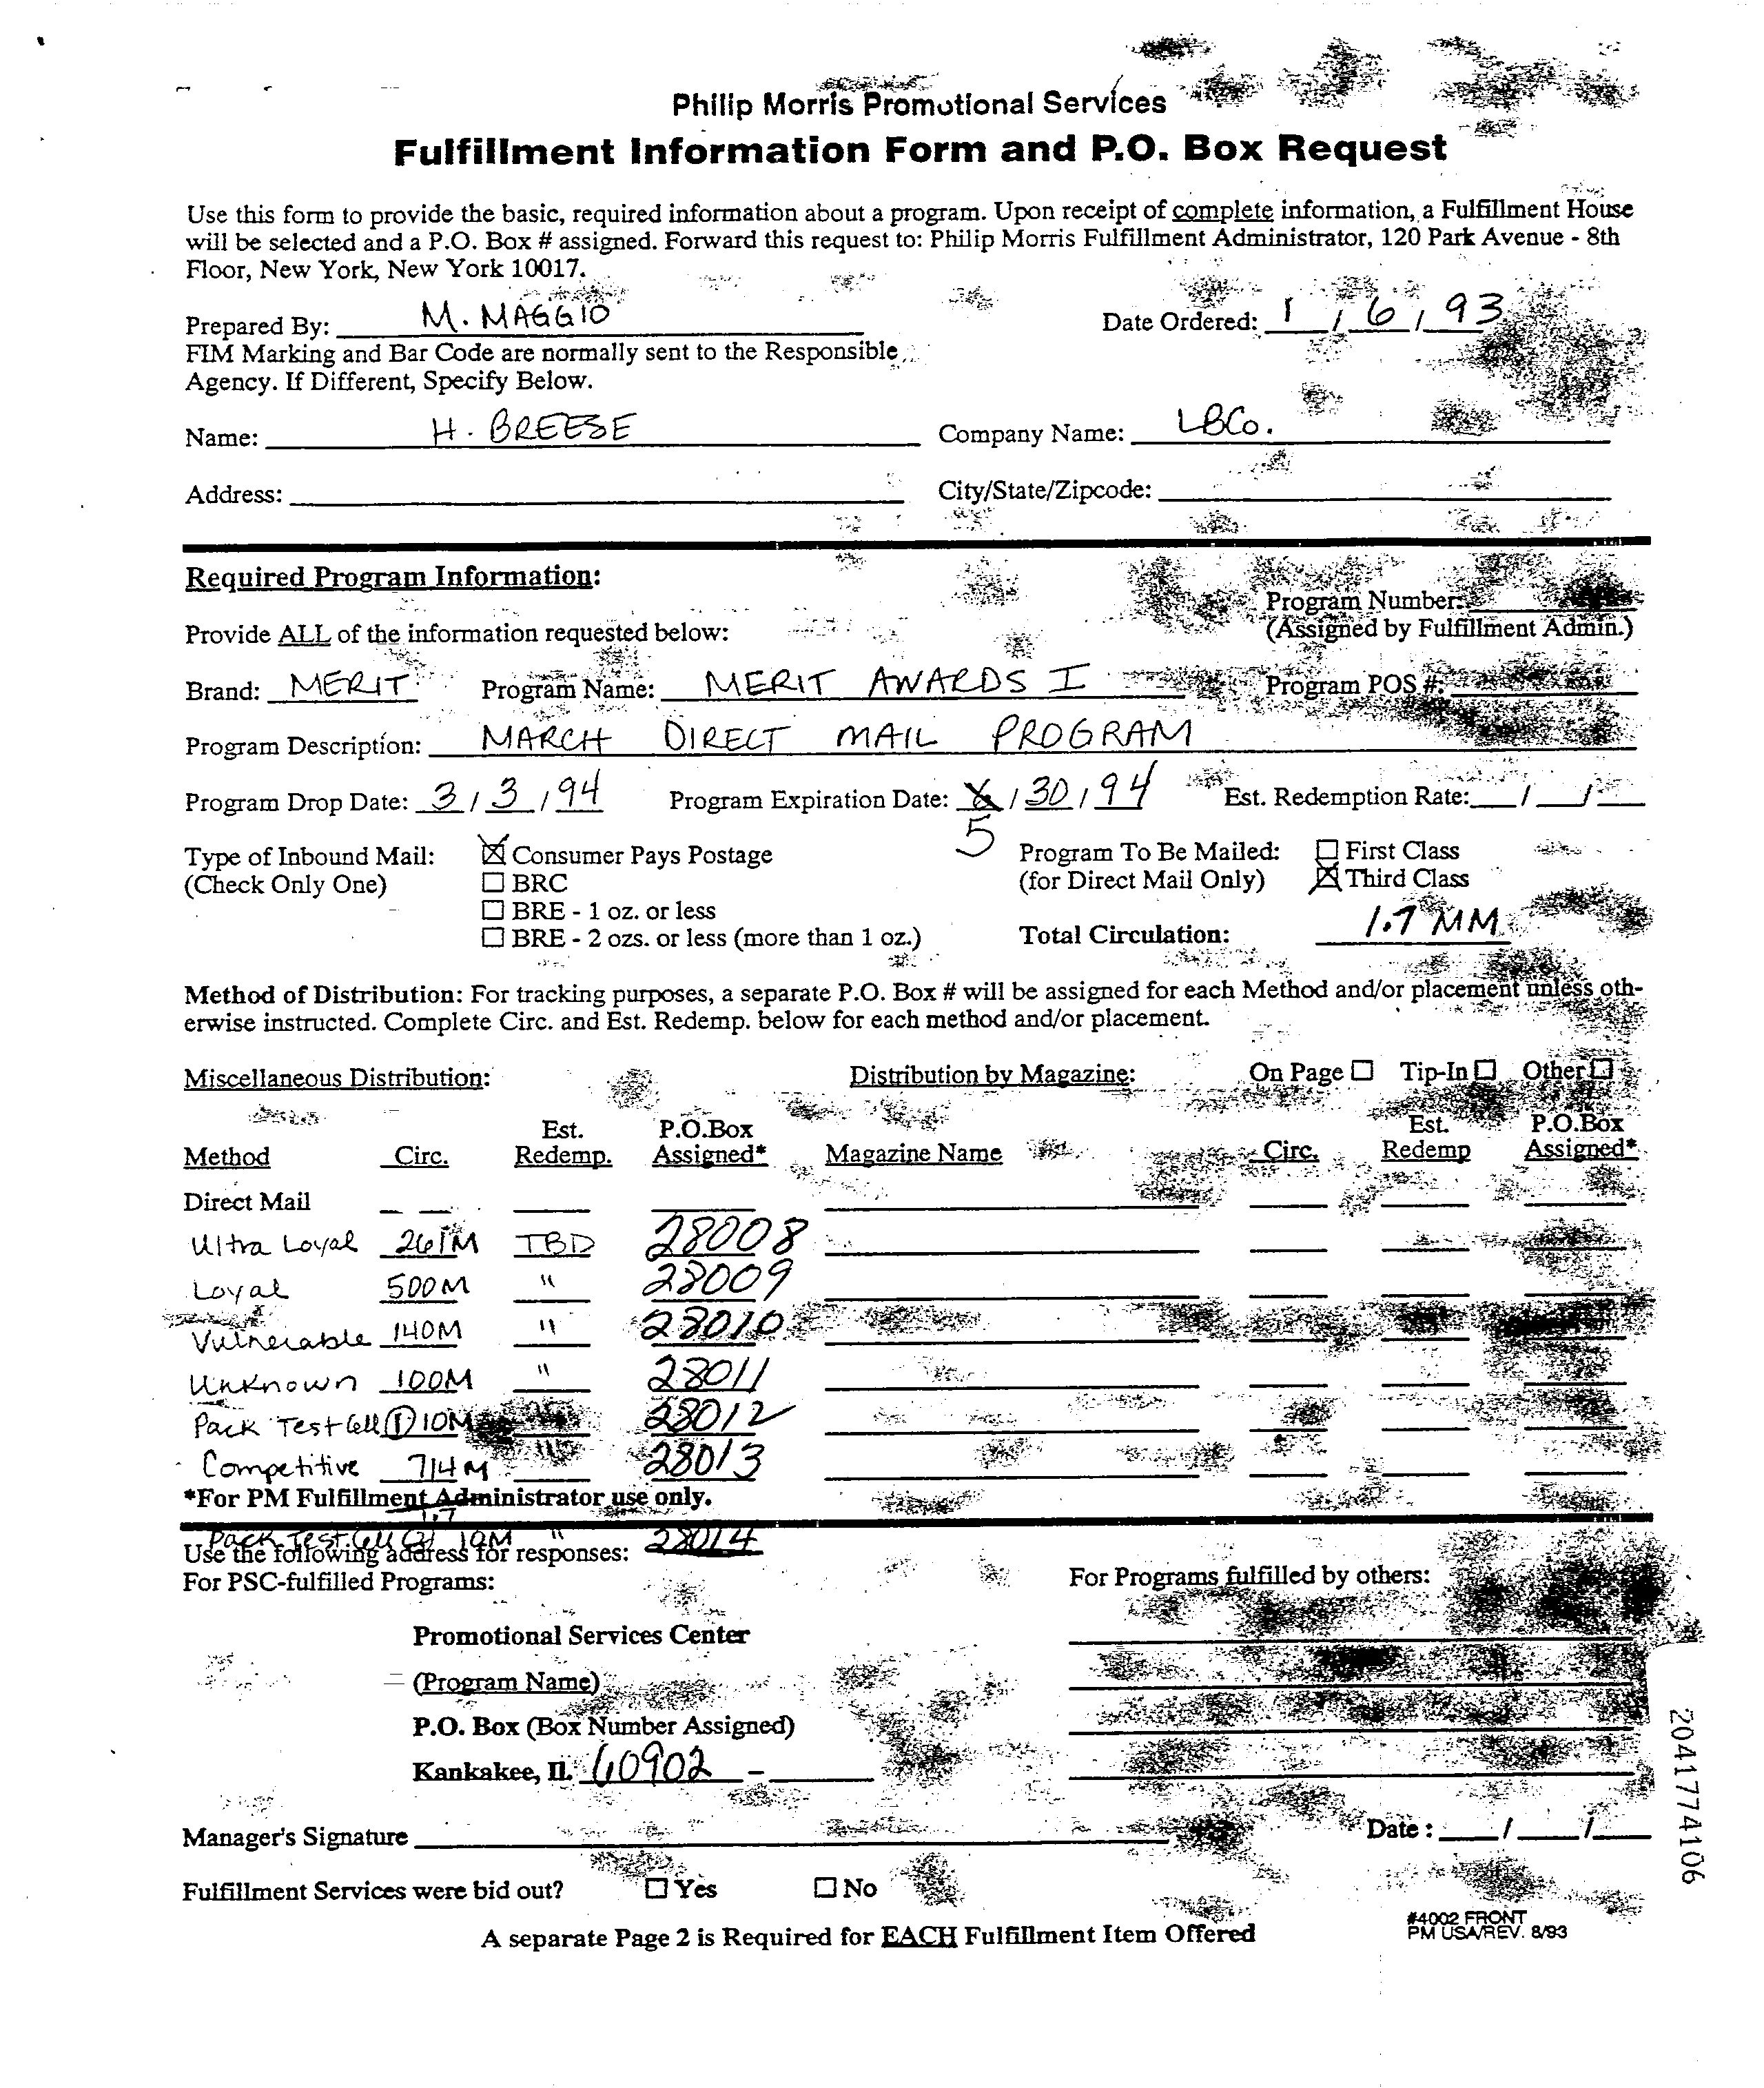 Philip Morris Promotional Services
Fulfillment Information Form and P.O. Box Request
Use this form to provide the basic, required information about a program. Upon receipt of complete information, a Fulfillment House
will be selected and a P.O. Box # assigned. Forward this request to: Philip Morris Fulfillment Administrator, 120 Park Avenue - 8th
Floor, New York, New York 10017.
Prepared By: M. MAGGIO Date Ordered: 1 / 6 / 93
FIM Marking and Bar Code are normally sent to the Responsible
Agency. If Different, Specify Below.
Name: H. BREESE Company Name: LBCo.
Address: City/State/Zipcode:
Required Program Information:
Program Number:
Provide ALL of the information requested below: (Assigned by Fulfillment Admin.)
Brand: MERIT Program Name: MERIT AWARDS I Program POS #:
Program Description: MARCH DIRECT MAIL PROGRAM
Program Drop Date: 3 / 3 / 94 Program Expiration Date: 6 / 30 / 94 Est. Redemption Rate: / /
5
Type of Inbound Mail: ☒ Consumer Pays Postage Program To Be Mailed: ☐ First Class
(Check Only One) ☐ BRC (for Direct Mail Only) ☒ Third Class
☐ BRE - 1 oz. or less
☐ BRE - 2 ozs. or less (more than 1 oz.) Total Circulation: 1.7 MM
Method of Distribution: For tracking purposes, a separate P.O. Box # will be assigned for each Method and/or placement unless oth-
erwise instructed. Complete Circ. and Est. Redemp. below for each method and/or placement.
Miscellaneous Distribution: Distribution by Magazine: On Page ☐ Tip-In ☐ Other ☐
Est. P.O.Box Est. P.O.Box
Method Circ. Redemp. Assigned* Magazine Name Circ. Redemp Assigned*
Direct Mail
Ultra Loyal 261M TBD 28008
Loyal 500M " 28009
Vulnerable 140M " 28010
Unknown 100M " 28011
Pack Test Cell (1) 10M 28012
Competitive 714M " 28013
*For PM Fulfillment Administrator use only.
1.7
Pack Test Cell (2) 10M " 28014
Use the following address for responses:
For PSC-fulfilled Programs: For Programs fulfilled by others:
Promotional Services Center
(Program Name)
P.O. Box (Box Number Assigned)
Kankakee, IL 60902 -
Manager's Signature Date : / /
Fulfillment Services were bid out? ☐ Yes ☐ No
A separate Page 2 is Required for EACH Fulfillment Item Offered
#4002 FRONT
PM USA/REV. 8/93
2041774106